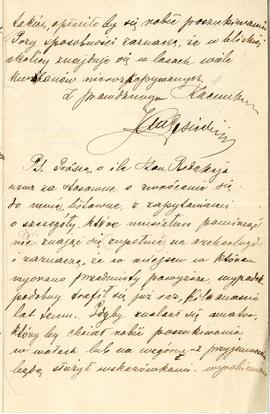 takich, opłaciło by się robić poszukiwania.
Przy sposobności zaznaczę, że w bliskiej
okolicy znajduje się w lasach wiele
kurhanów nierozkopywanych.
Z prawdziwym szacunkiem
Ps. Proszę, o ile Szan. Redakcja
uzna za stosowne o zwrócenie się
do mnie, listownie, z zapytaniami
o szczegóły, które musiałem pominąć
nie znając się zupełnie na archeologji
i zaznaczę, że w miejscu w którem
wyorano przedmioty powyższe, wypadek
podobny trafił się już raz, kilkanaście
lat temu. Gdyby znalazł się amator,
któryby chciał robić poszukiwania
w mojem lub na
będę służył wskazówkami